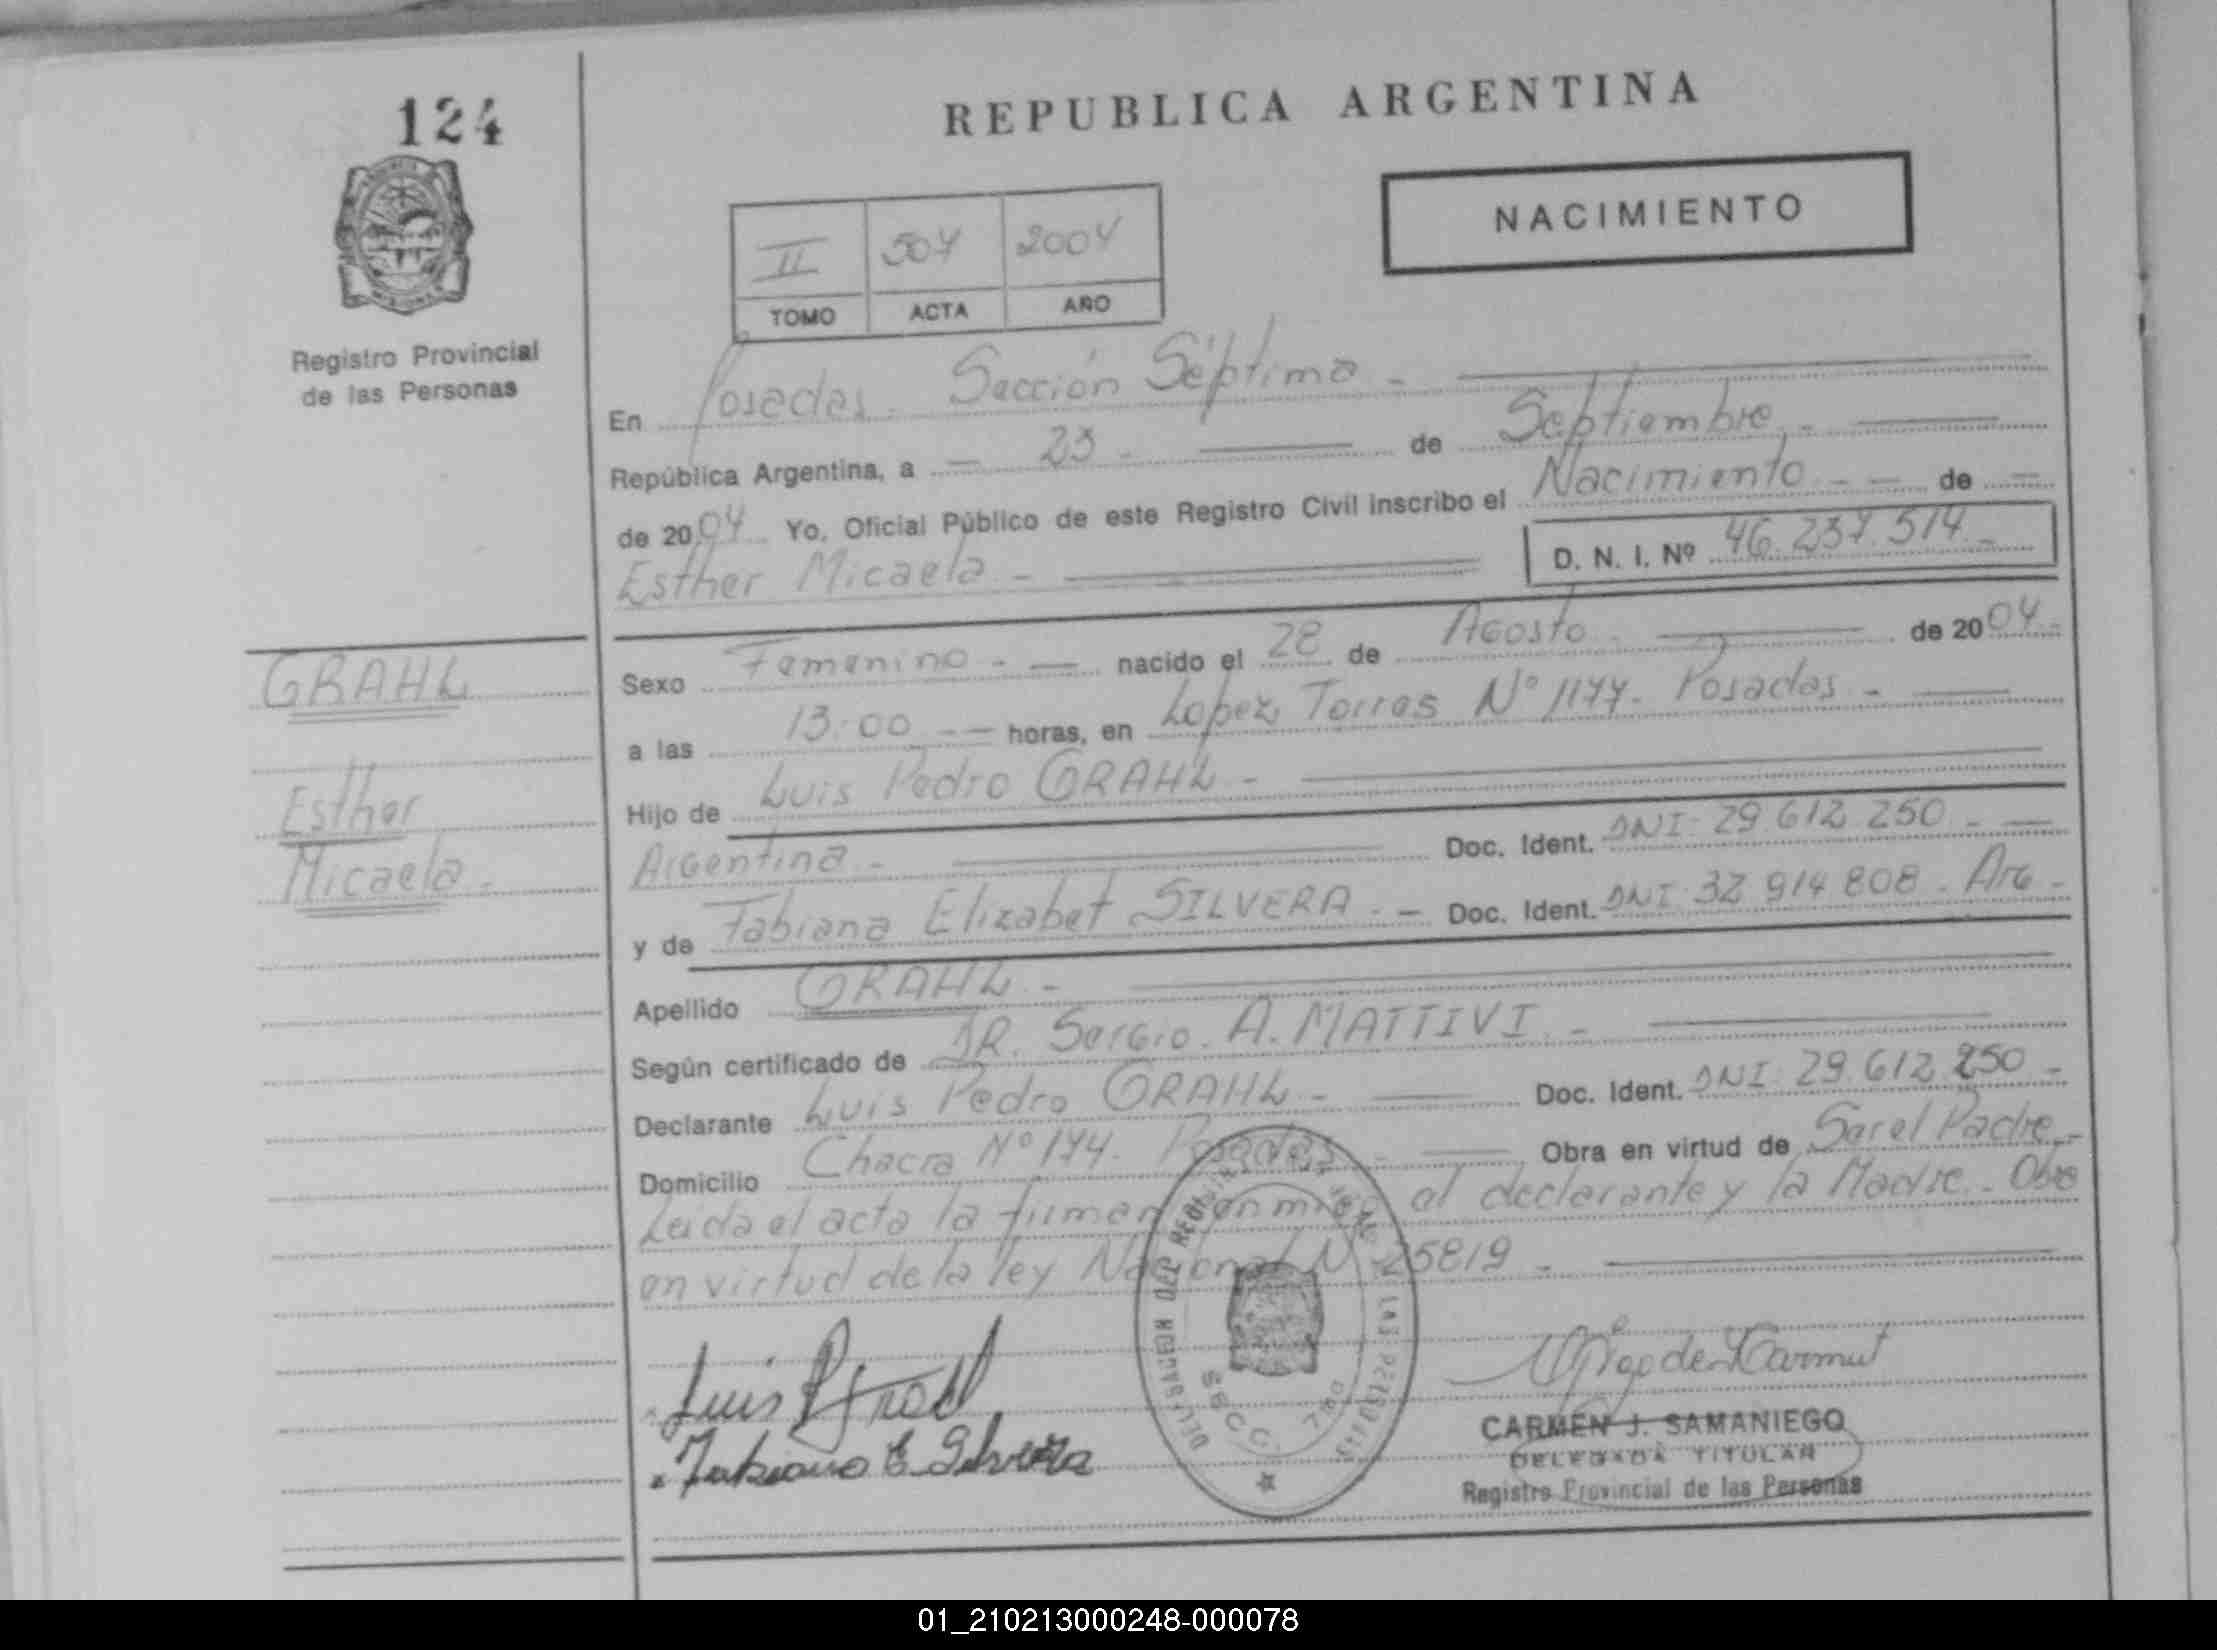 124
REPUBLICA ARGENTINA
NACIMIENTO
II 507 2004
TOMO ACTA AÑO
Registro Provincial
de las Personas
En Posadas. Sección Séptima -
República Argentina, a - 23 - de Septiembre,-
de 2004 Yo, Oficial Público de este Registro Civil inscribo el Nacimiento - - de -
Esther Micaela - D. N. I. Nº 46.237.514.-
GRAHL
Esther
Micaela.-
Sexo Femenino - - nacido el 28 de Agosto. de 2004.-
a las 13:00 - - horas, en Lopez Torres Nº 1177. Posadas. -
Hijo de Luis Pedro GRAHL -
Argentina - Doc. Ident. DNI. 29.612.250 - -
y de Fabiana Elizabet SILVERA. - Doc. Ident. DNI. 32.914.808. Arg -
Apellido GRAHL -
Según certificado de DR. Sergio. A. MATTIVI. -
Declarante Luis Pedro GRAHL - Doc. Ident. DNI. 29.612.250 -
Domicilio Chacra Nº 174. Posadas - Obra en virtud de Ser el Padre.-
Leida el acta la firman conmigo el declarante y la Madre. Obra
en virtud de la ley Nacional Nº 25819 -
Luis P Grahl
Fabiana E. Silvera
DELEGACION DEL REGISTRO DE LAS PERSONAS
SECC. 7ma
CARMEN J. SAMANIEGO
DELEGADA TITULAR
Registro Provincial de las Personas
01_210213000248-000078